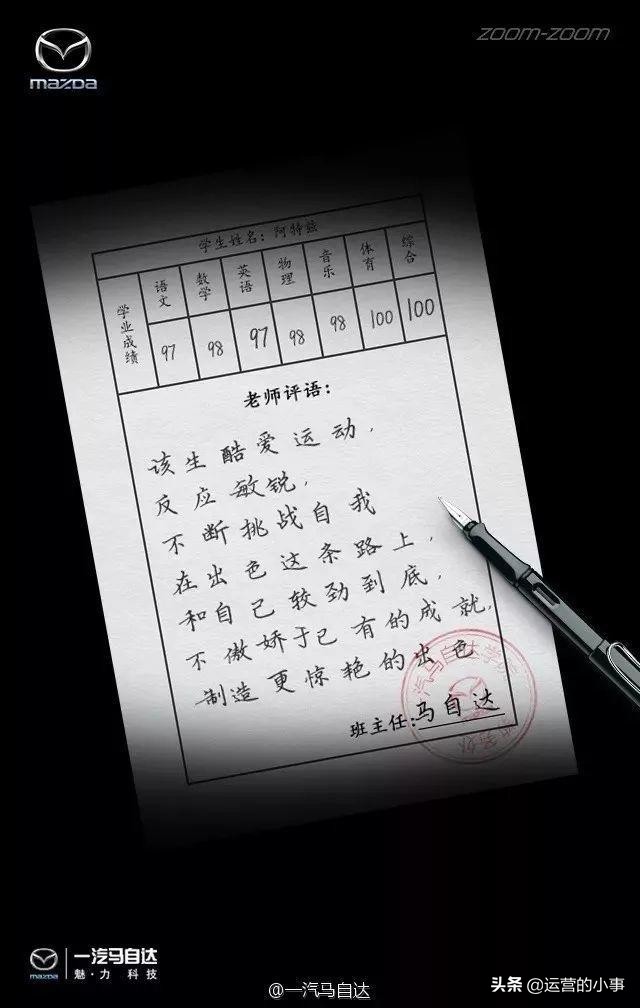 mazda
zoom-zoom
学生姓名：阿特兹
学业成绩
语文 数学 英语 物理 音乐 体育 综合
97 98 97 98 98 100 100
老师评语：
该生酷爱运动，
反应敏锐，
不断挑战自我
在出色这条路上，
和自己较劲到底，
不傲娇于已有的成就，
制造更惊艳的出色
班主任：马自达
一汽马自达学
mazda
一汽马自达
魅·力 科技
@一汽马自达
头条 @运营的小事